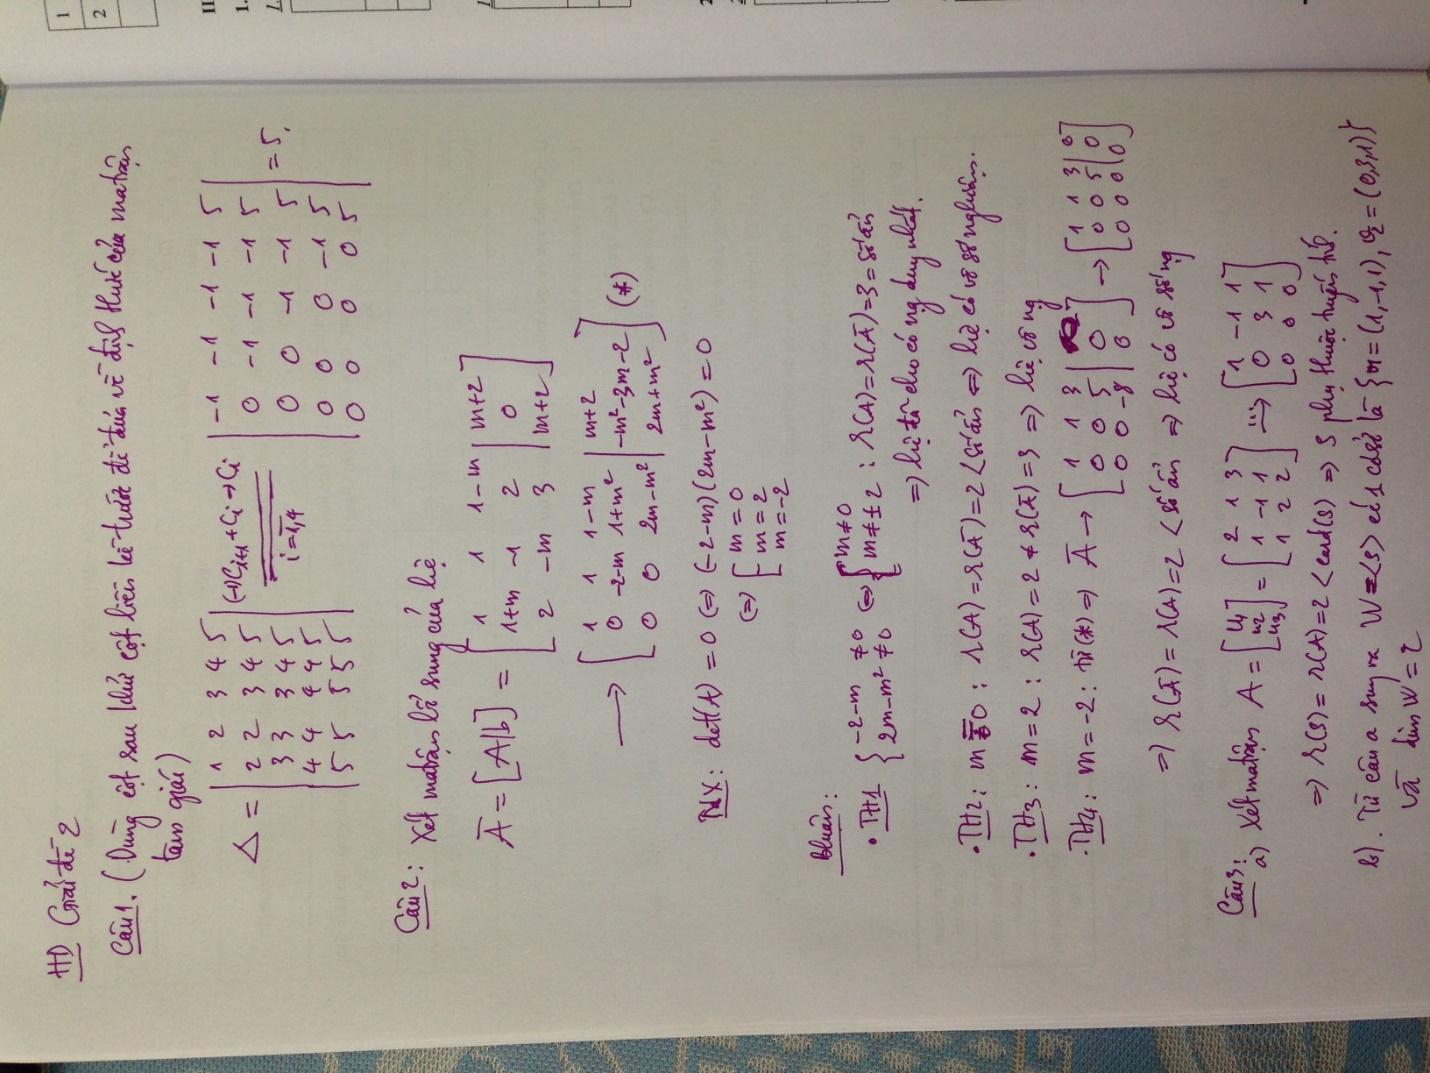 HD Giải đề 2
Câu 1. (Dùng cột sau khử cột liền kề trước để đưa về định thức của ma trận
tam giác)
Δ = | 1 2 3 4 5 | (-1)C_{i+1} + C_i → C_i | -1 -1 -1 -1 5 | = 5.
| 2 2 3 4 5 | i=1,4 | 0 -1 -1 -1 5 |
| 3 3 3 4 5 | | 0 0 -1 -1 5 |
| 4 4 4 4 5 | | 0 0 0 -1 5 |
| 5 5 5 5 5 | | 0 0 0 0 5 |
Câu 2: Xét ma trận bổ sung của hệ
Ā = [A|b] = [ 1 1 1-m | m+2 ]
[ 1+m -1 2 | 0 ]
[ 2 -m 3 | m+2 ]
→ [ 1 1 1-m | m+2 ]
[ 0 -2-m 1+m² | -m²-3m-2 ] (*)
[ 0 0 2m-m² | 2m+m² ]
NX: det(A) = 0 ⇔ (-2-m)(2m-m²) = 0
⇔ [ m = 0
[ m = 2
[ m = -2
Bluận:
• TH1 { -2-m ≠ 0 ⇔ { m ≠ 0 : r(A) = r(Ā) = 3 = số ẩn
{ 2m-m² ≠ 0 { m ≠ ±2
⇒ hệ đã cho có ng duy nhất.
• TH2: m = 0 : r(A) = r(Ā) = 2 < số ẩn ⇔ hệ có vô số nghiệm.
• TH3: m = 2 : r(A) = 2 ≠ r(Ā) = 3 ⇒ hệ vô ng
• TH4: m = -2 : từ (*) ⇒ Ā → [ 1 1 3 | 0 ] → [ 1 1 3 | 0 ]
[ 0 0 5 | 0 ] [ 0 0 5 | 0 ]
[ 0 0 -8 | 0 ] [ 0 0 0 | 0 ]
⇒ r(Ā) = r(A) = 2 < số ẩn ⇒ hệ có vô số ng
Câu 3:
a) Xét ma trận A = [ u₁ ] = [ 2 1 3 ] → [ 1 -1 1 ]
[ u₂ ] [ 1 -1 1 ] [ 0 3 1 ]
[ u₃ ] [ 1 2 2 ] [ 0 0 0 ]
⇒ r(S) = r(A) = 2 < card(S) ⇒ S phụ thuộc tuyến tính.
b). Từ câu a suy ra W = <S> có 1 cơ sở là { v₁ = (1,-1,1), v₂ = (0,3,1) }
và dim W = 2